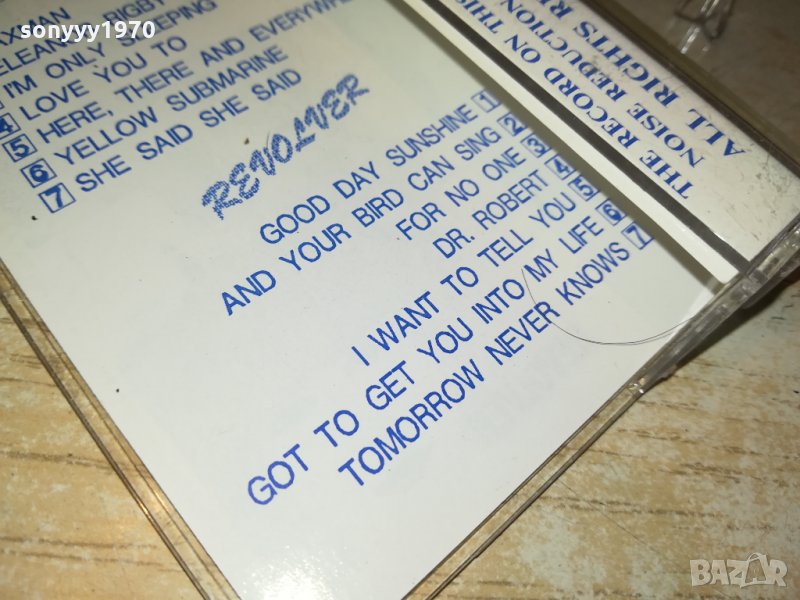 sonyyy1970
RIGBY
I'M ONLY SLEEPING
4 LOVE YOU TO
5 HERE, THERE AND EVERYWHE
6 YELLOW SUBMARINE
7 SHE SAID SHE SAID
REVOLVER
GOOD DAY SUNSHINE 1
AND YOUR BIRD CAN SING 2
FOR NO ONE 3
DR. ROBERT 4
I WANT TO TELL YOU 5
GOT TO GET YOU INTO MY LIFE 6
TOMORROW NEVER KNOWS 7
THE RECORD ON THIS
NOISE REDUCTION
ALL RIGHTS RE
BAZAR